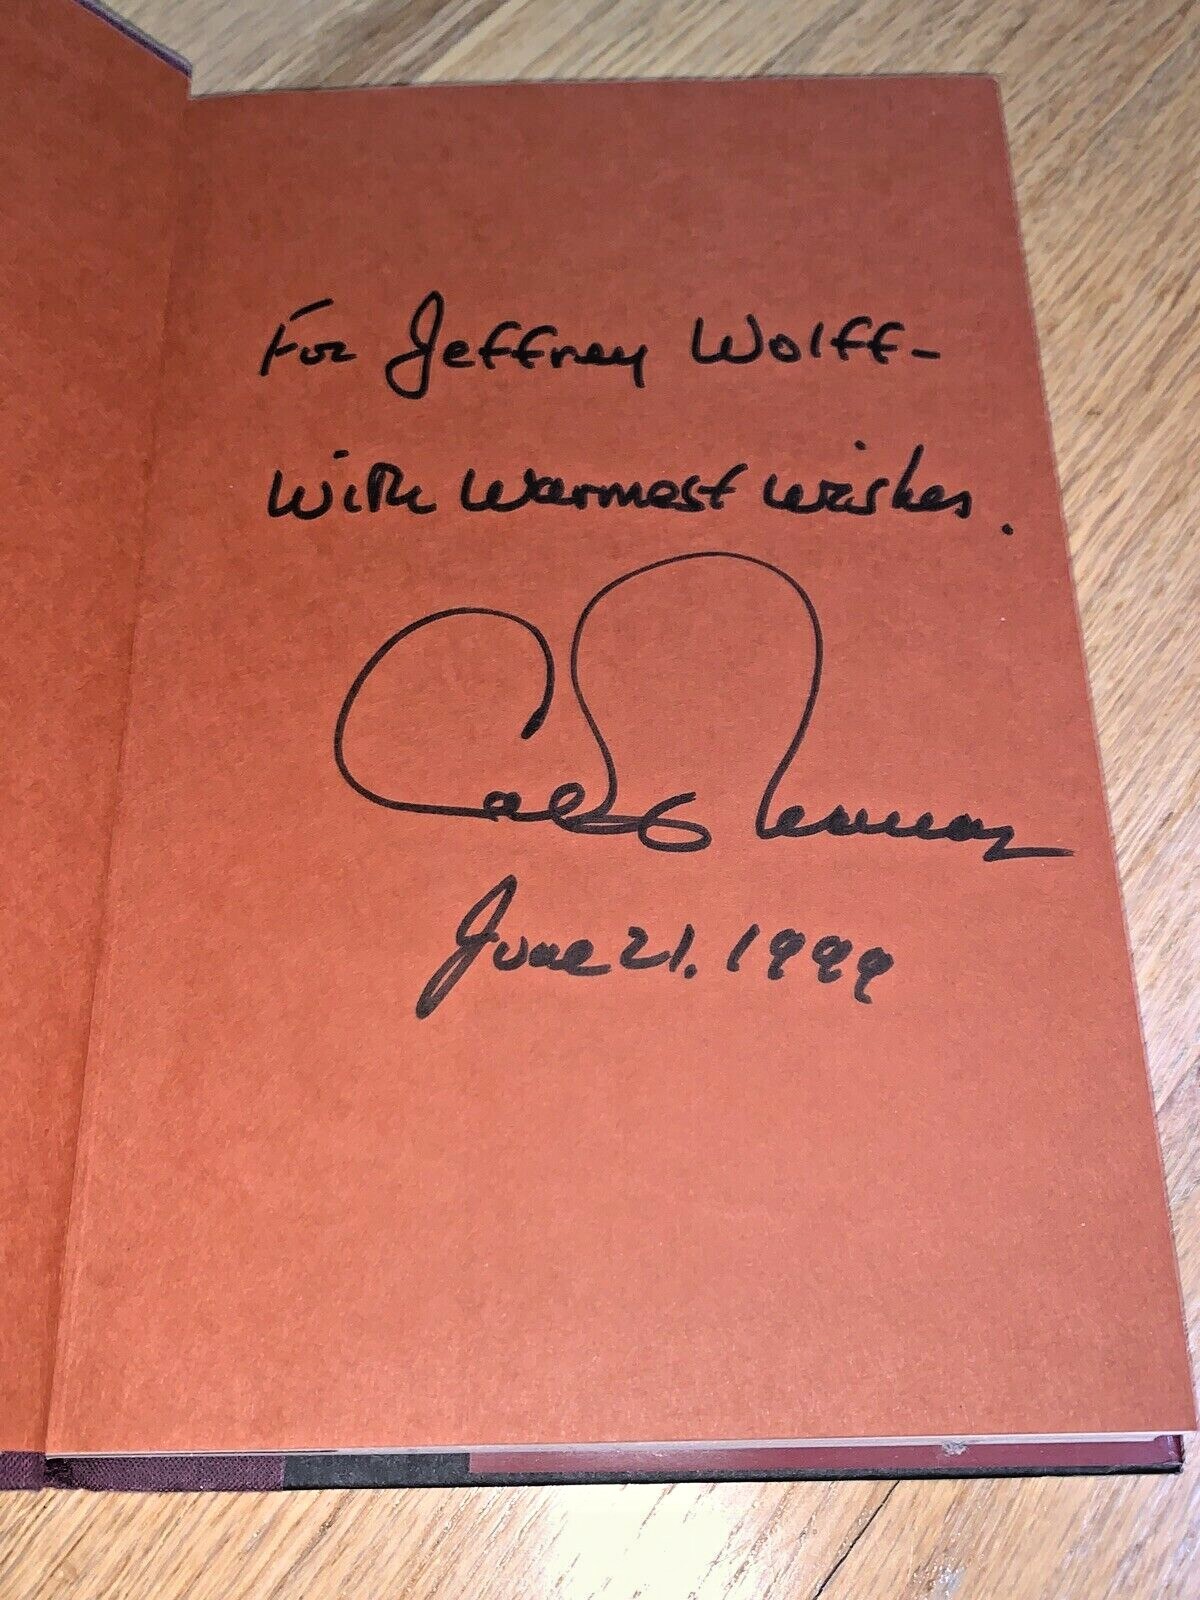 For Jeffrey Wolff-
With warmest wishes.
June 21. 1999